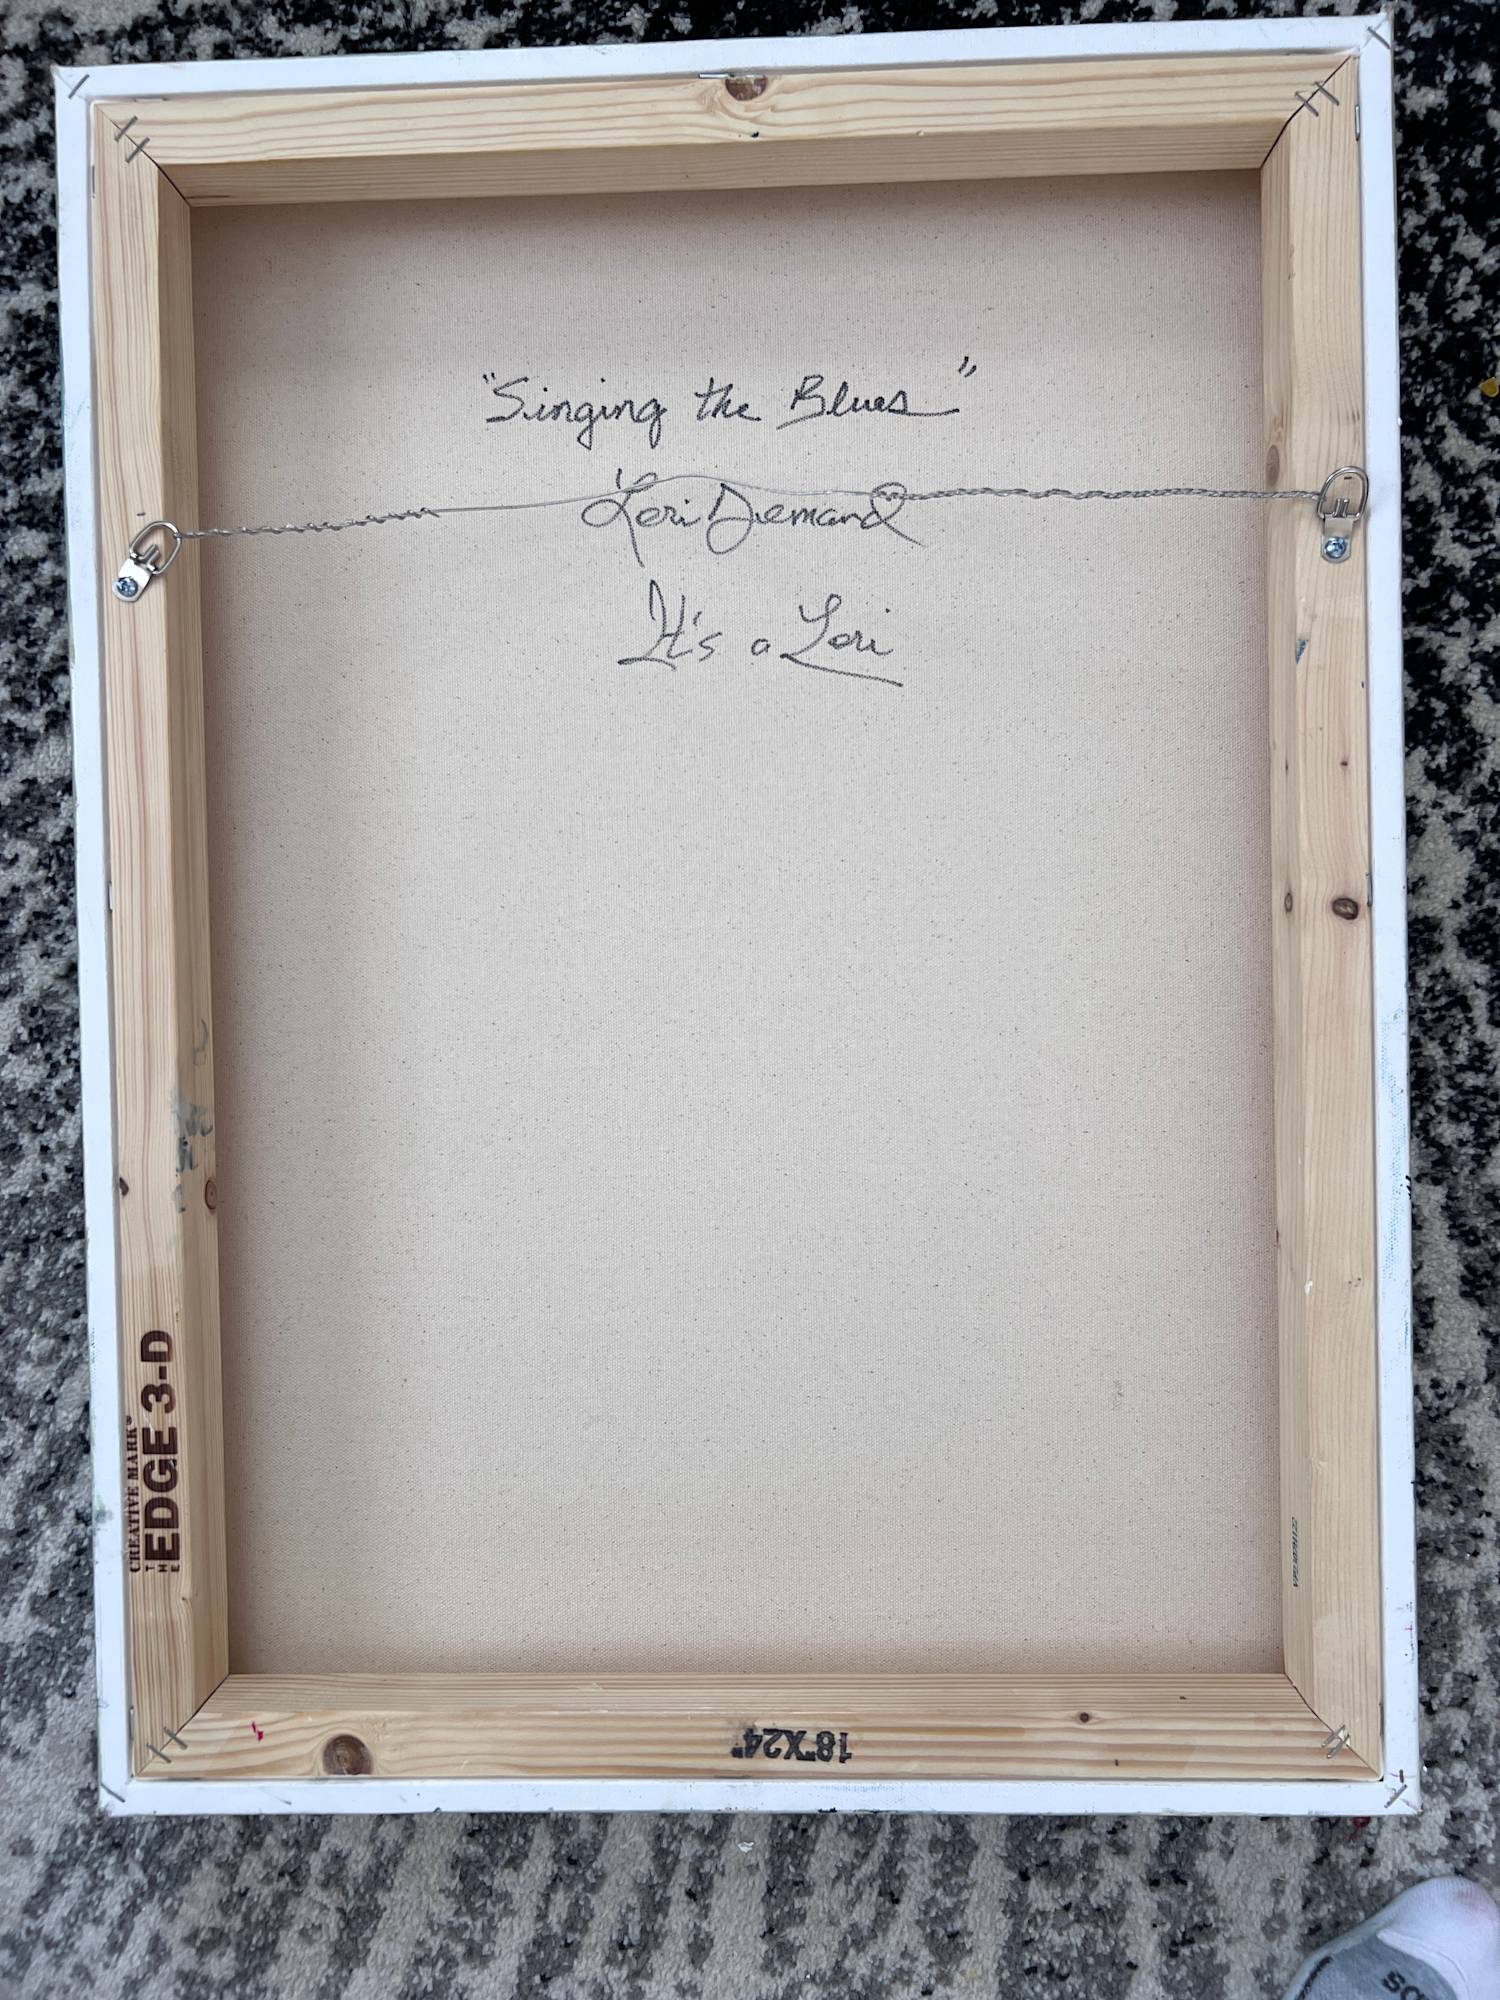 "Singing the Blues"
Lori Demand
It's a Lori
CREATIVE MARK®
THE EDGE 3-D
18"X24"